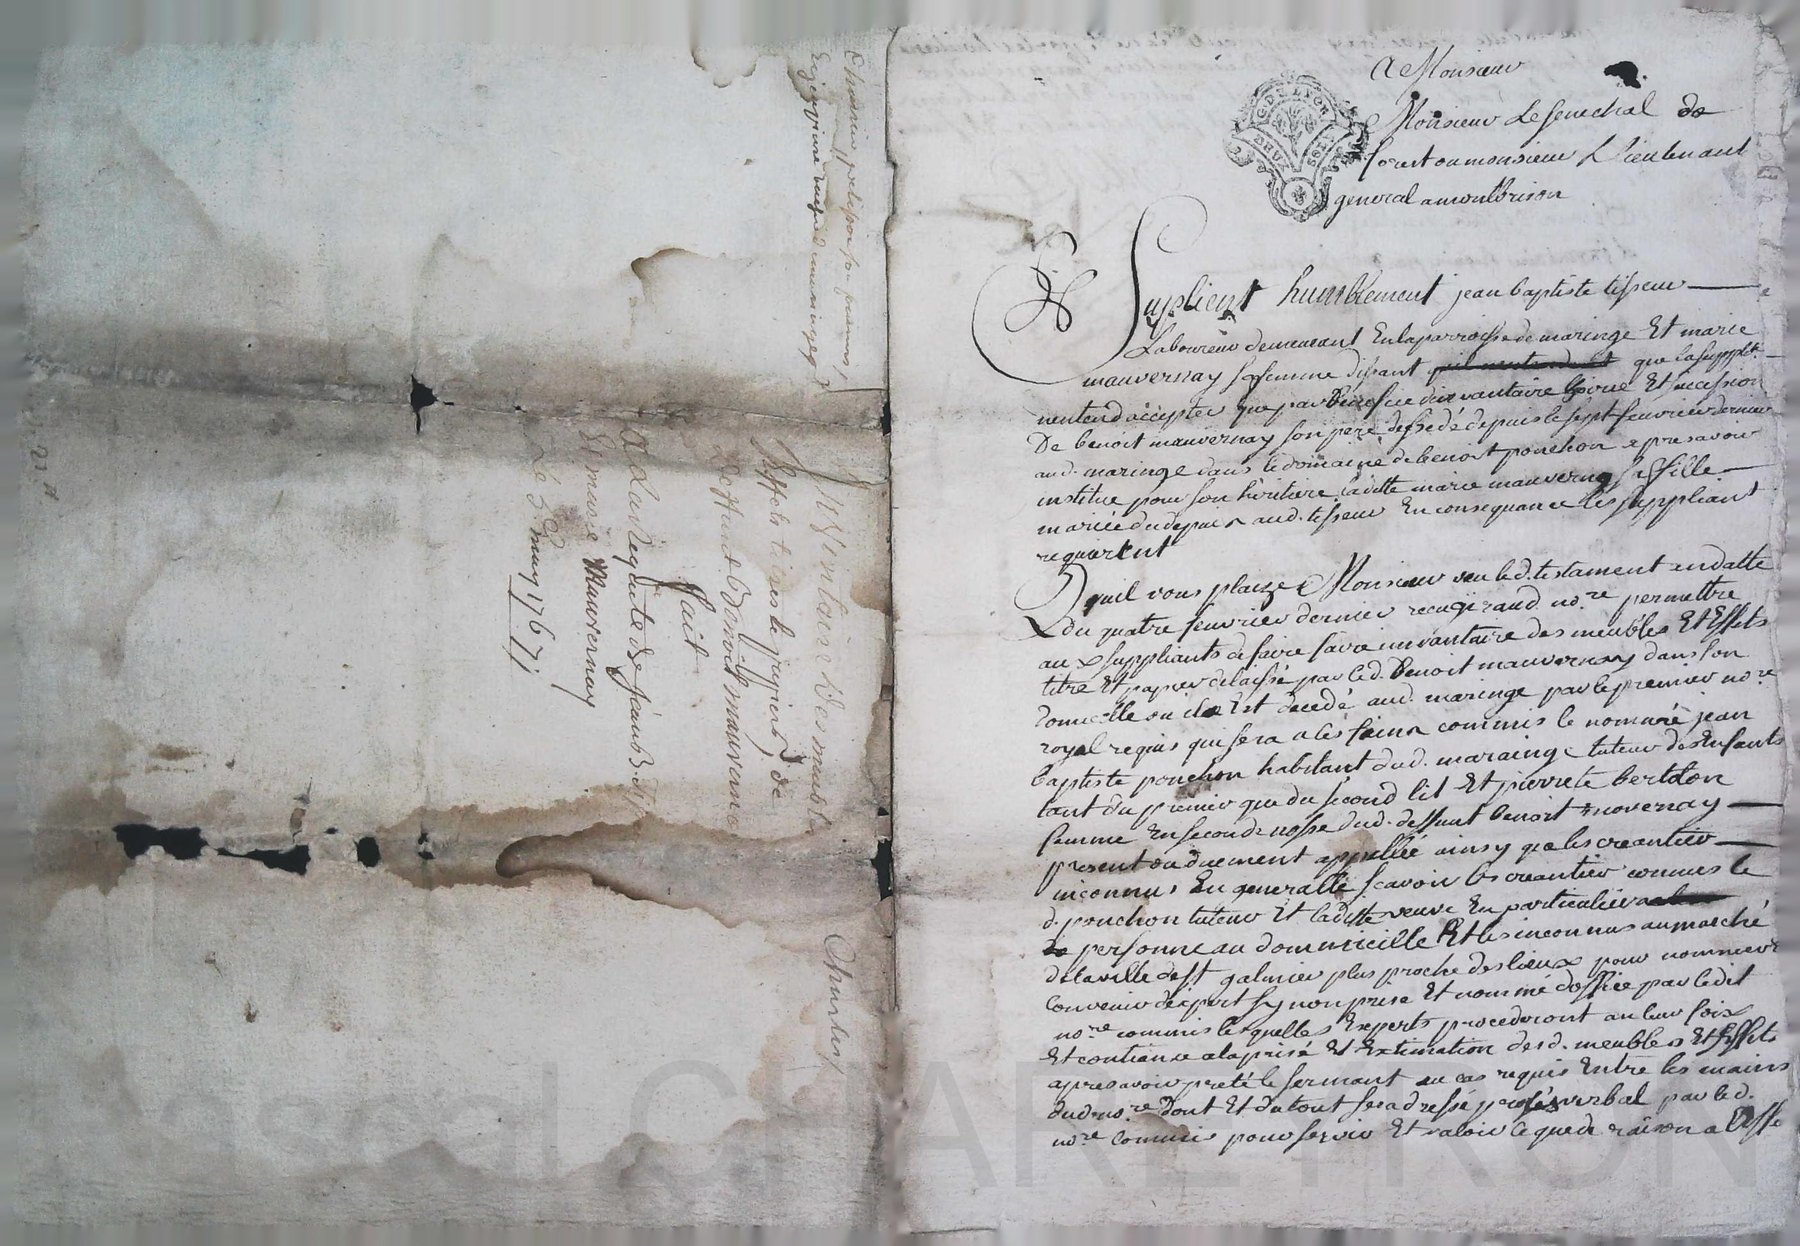 Inventaire des meubles
Effets titres & papiers, de
Deffunt Benoit mauverna
fait
A La requête de jean B. tiss
Et marie Mauvernay
Le 5 may 1767
GD DE LYON
A Monsieur
Monsieur Le senechal de
forest ou monsieur L lieutenant
general a montbrison
Suplient humblement jean baptiste tisseur
Laboureur demeurant En la parroisse de maringe Et marie
mauvernay sa femme disant que la supplte.
nentend accepter que par benefice dinvantaire hoirie Et sucession
De benoit mauvernay son pere dessedé depuis le sept feuvrier dernier
aud. maringe dans le domaine de benoit ponchon apres avoir
institue pour son héritiere laditte marie mauvernay sa fille
mariée du depuis aud. tisseur En consequance les suppliant
requierent
quil vous plaize Monsieur veu led. testament en datte
du quatre feuvrier dernier recu giraud nore. permettre
aux suppliants de faire faire invantaire des meubles Et Effets
titre Et papier delaissé par led. Benoit mauvernay dans son
domicille ou il Est decedé aud. maringe par le premier nore
royal requis qui sera a les fains commis le nommé jean
baptiste ponchon habitant dud. marainge tuteur des Enfants
tant du premier que du second lit Et pierrete bertolon
femme En seconde nosse dud. deffunt benoit movernay
present ou duement appellée ainsy que les creantier
inconnus En generalle scavoir les creantier connus le
d. ponchon tuteur Et laditte veuve En particulier
personne au dommicille Et les inconnus au marché
de la ville de st galmier plus proche des lieux pour nommer
convenir d'expert sy non prise Et nomme d'office par ledit
nore commis lesquelles Experts procederont an leur foix
Et contiance a la prisé Et Extimation desd. meubles Et Effets
apres avoir preté le sermant au cas requis Entre les mains
dud. nore dont Et du tout sera dressé procés verbal par led.
nore commis pour servir Et valoir ce que de raison a Cesse
CHARETRON